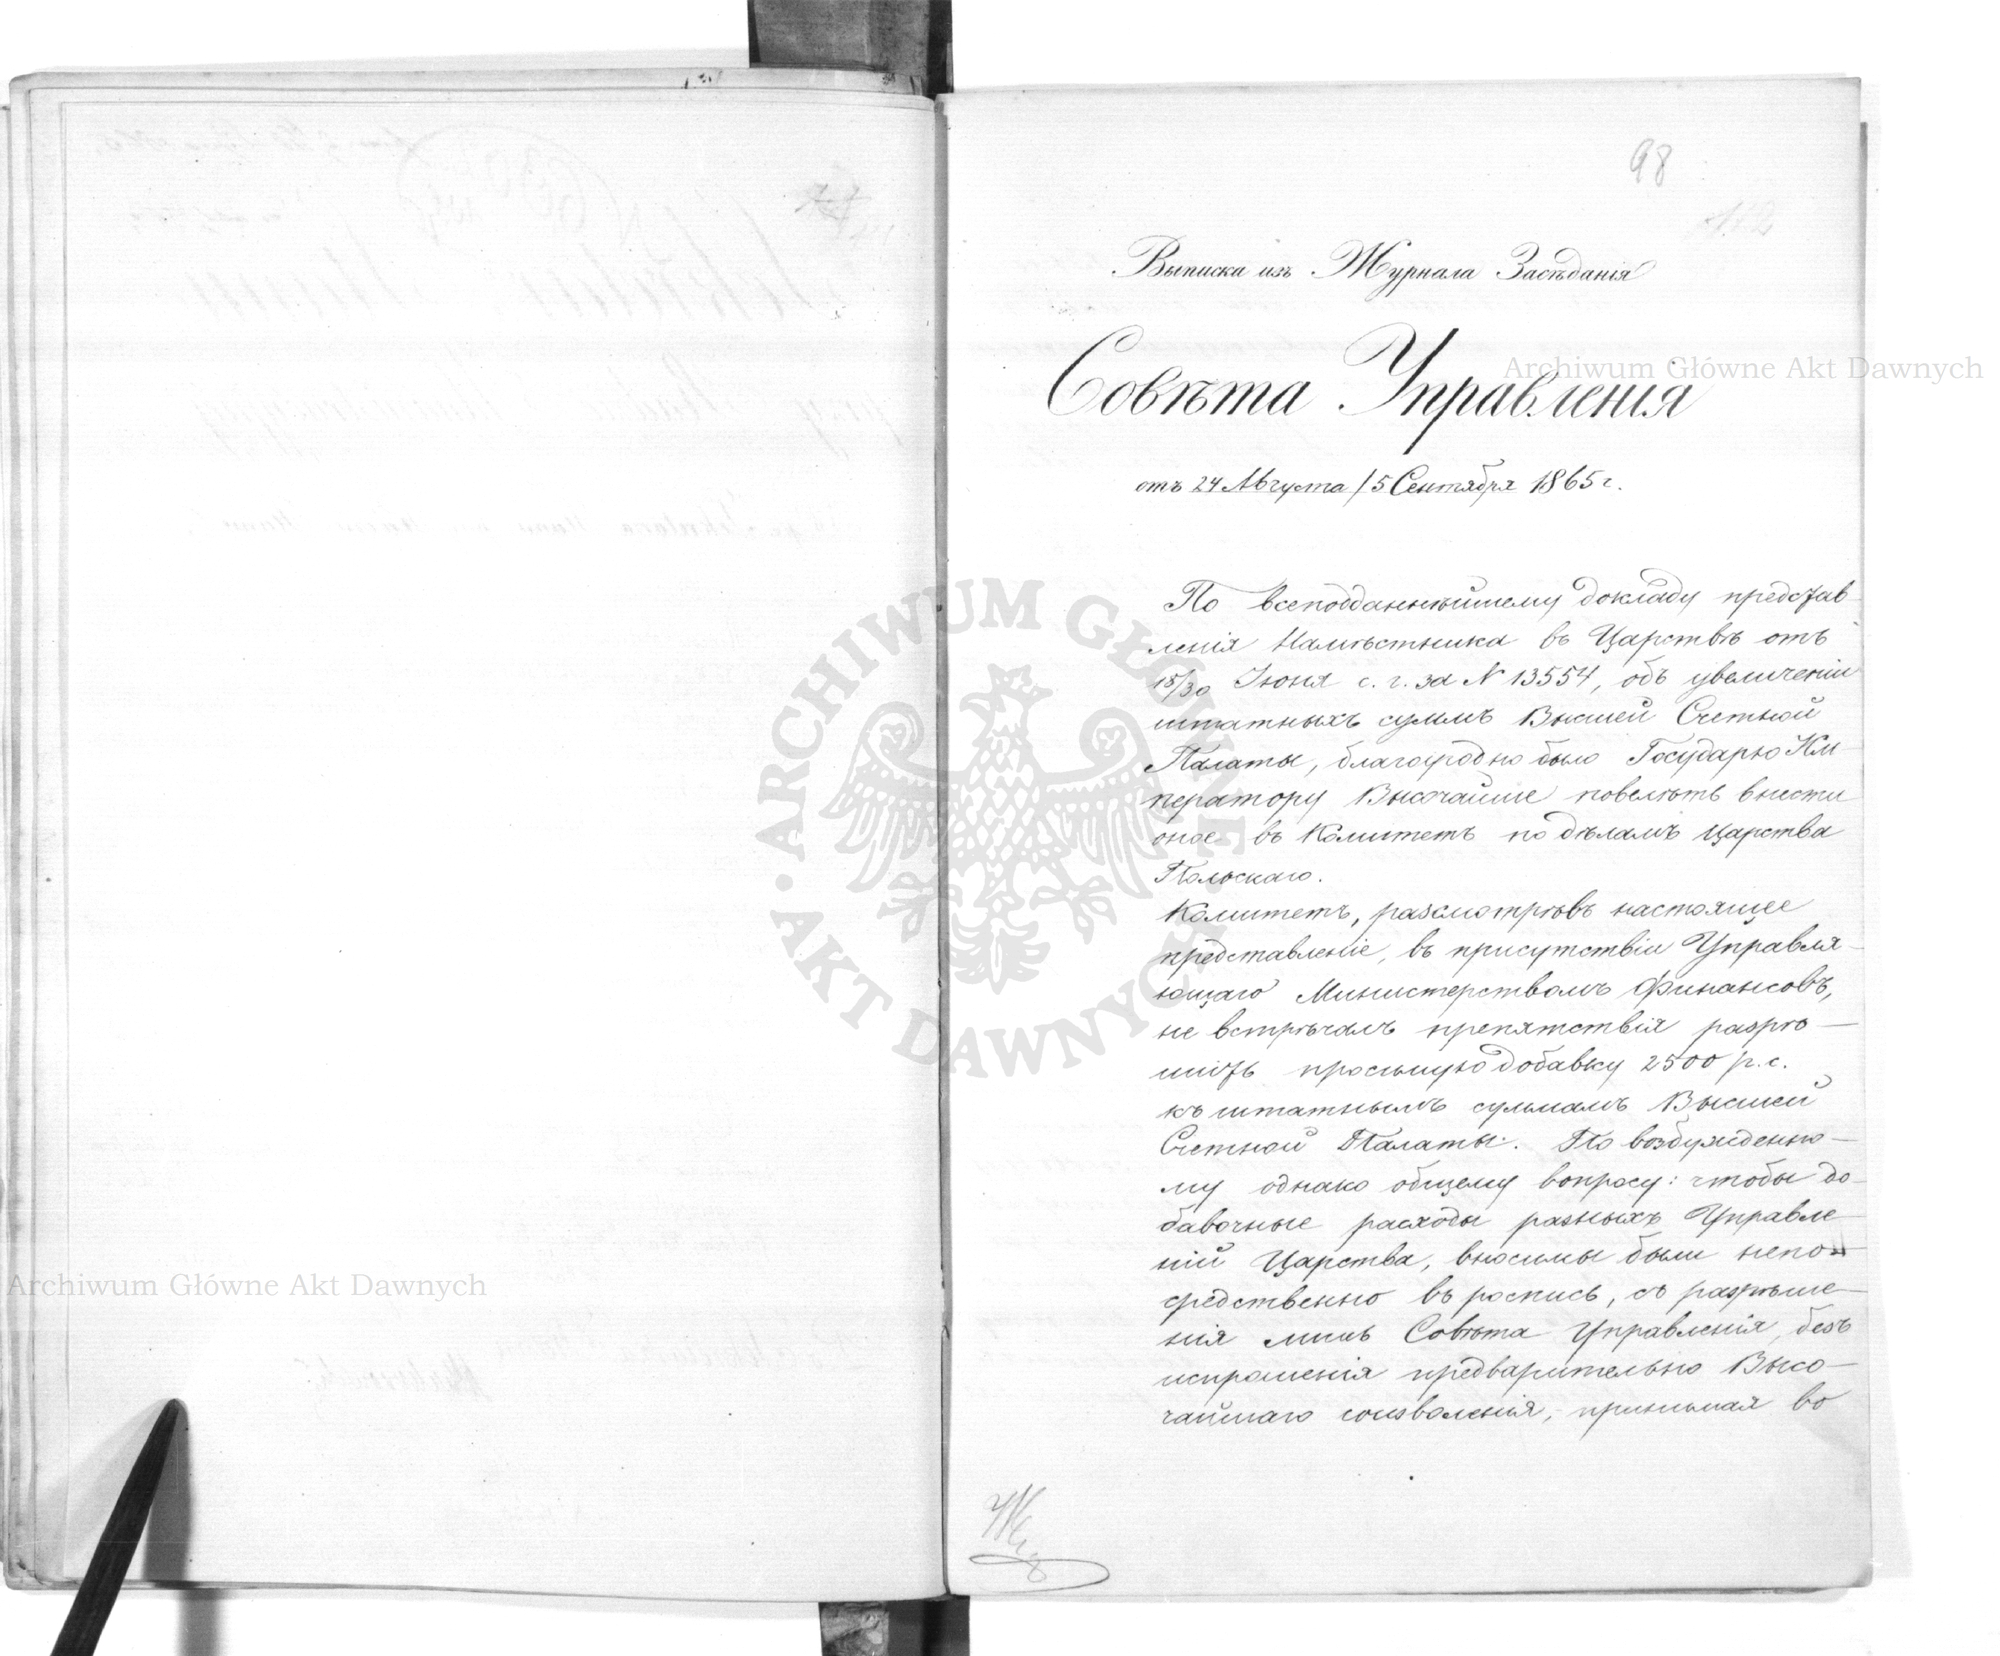 98
Выписка изъ Журнала Засѣданія
Совѣта Управленія
отъ 24 Августа / 5 Сентября 1865 г.
По всеподданнѣйшему докладу представ-
ленія Намѣстника въ Царствѣ отъ
18/30 Іюня с. г. за N 13554, объ увеличеніи
штатныхъ суммъ Высшей Счетной
Палаты, благоугодно было Государю Им-
ператору Высочайше повелѣть внести
оное въ Комитетъ по дѣламъ Царства
Польскаго.
Комитетъ, разсмотрѣвъ настоящее
представленіе, въ присутствіи Управля-
ющаго Министерствомъ Финансовъ,
не встрѣчалъ препятствія разрѣ-
шить просимую добавку 2500 р. с.
къ штатнымъ суммамъ Высшей
Счетной Палаты. По возбужденно-
му однако общему вопросу: чтобы до-
бавочные расходы разныхъ Управле-
ній Царства, вносимы были непо-
средственно въ роспись, съ разрѣше-
нія лишь Совѣта Управленія, безъ
испрошенія предварительно Высо-
чайшаго соизволенія, принимая во
Archiwum Główne Akt Dawnych
Archiwum Główne Akt Dawnych
ARCHIWUM GŁÓWNE AKT DAWNYCH